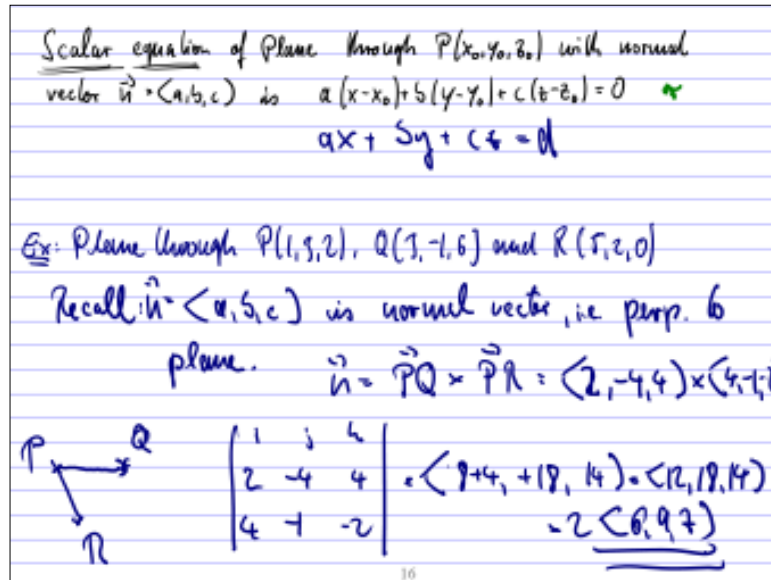 Scalar equation of Plane through P(x₀,y₀,z₀) with normal
vector n⃗ = ⟨a,b,c⟩ is a(x-x₀)+b(y-y₀)+c(z-z₀)=0 *
ax + by + cz = d
Ex: Plane through P(1,3,2), Q(3,-1,6) and R(5,2,0)
Recall: n⃗ = ⟨a,b,c⟩ is normal vector, i.e. perp. to
plane. n⃗ = P⃗Q × P⃗R = ⟨2,-4,4⟩×⟨4,-1,-2
P Q | i j k |
| 2 -4 4 | = ⟨8+4, +18, 14⟩ = ⟨12,18,14⟩
R | 4 -1 -2 | = 2⟨6,9,7⟩
16